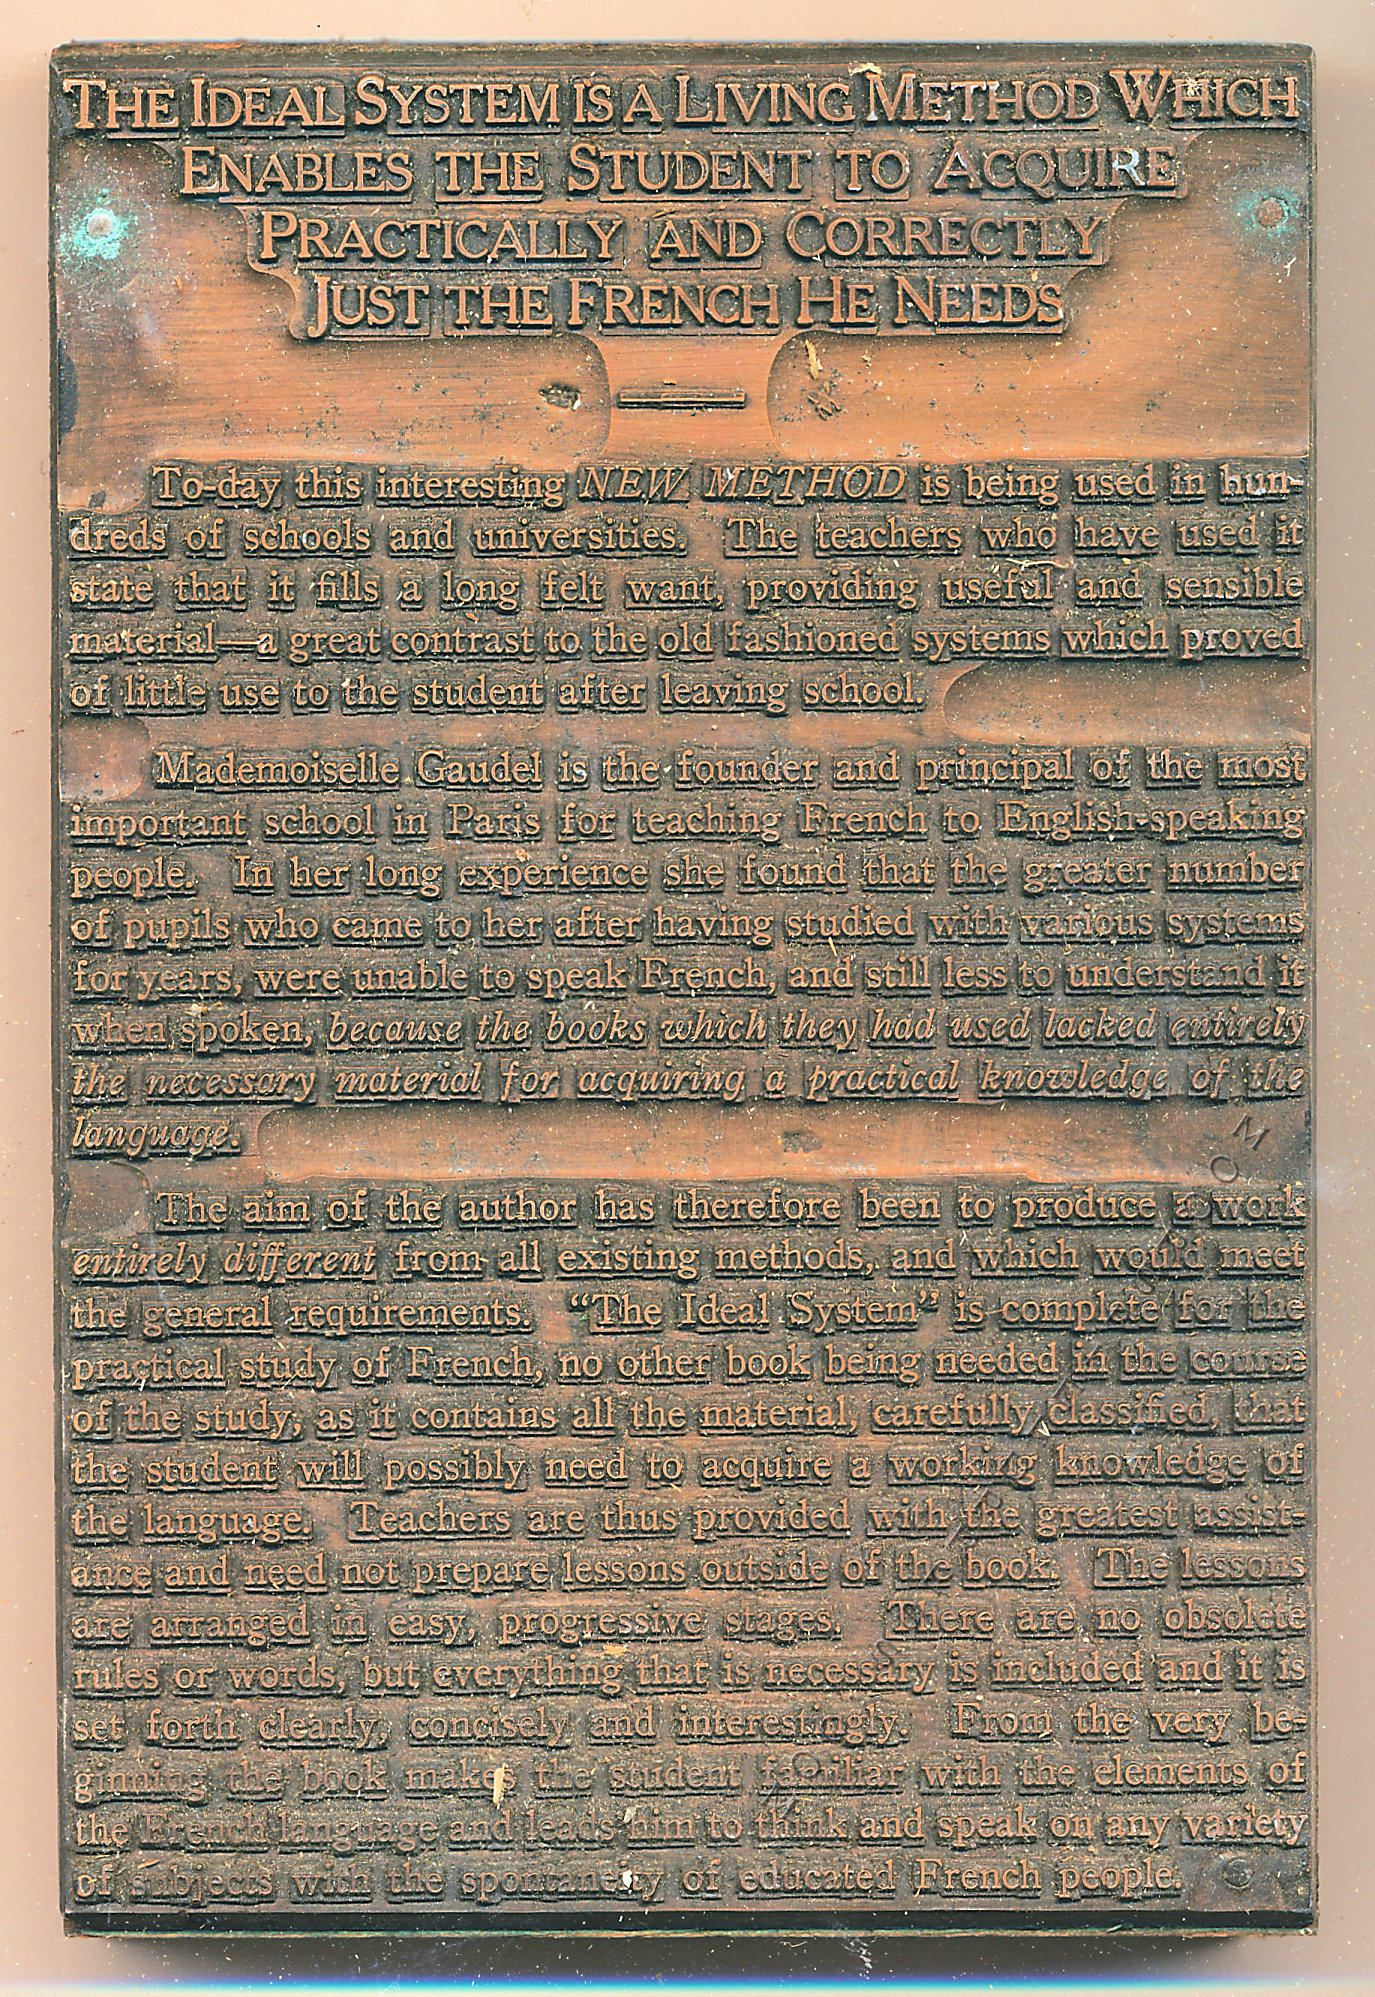 THE IDEAL SYSTEM IS A LIVING METHOD WHICH
ENABLES THE STUDENT TO ACQUIRE
PRACTICALLY AND CORRECTLY
JUST THE FRENCH HE NEEDS
To-day this interesting NEW METHOD is being used in hun-
dreds of schools and universities. The teachers who have used it
state that it fills a long felt want, providing useful and sensible
material—a great contrast to the old fashioned systems which proved
of little use to the student after leaving school.
Mademoiselle Gaudel is the founder and principal of the most
important school in Paris for teaching French to English-speaking
people. In her long experience she found that the greater number
of pupils who came to her after having studied with various systems
for years, were unable to speak French, and still less to understand it
when spoken, because the books which they had used lacked entirely
the necessary material for acquiring a practical knowledge of the
language.
The aim of the author has therefore been to produce a work
entirely different from all existing methods, and which would meet
the general requirements. “The Ideal System” is complete for the
practical study of French, no other book being needed in the course
of the study, as it contains all the material, carefully classified, that
the student will possibly need to acquire a working knowledge of
the language. Teachers are thus provided with the greatest assist-
ance and need not prepare lessons outside of the book. The lessons
are arranged in easy, progressive stages. There are no obsolete
rules or words, but everything that is necessary is included and it is
set forth clearly, concisely and interestingly. From the very be-
ginning the book makes the student familiar with the elements of
the French language and leads him to think and speak on any variety
of subjects with the spontaneity of educated French people.